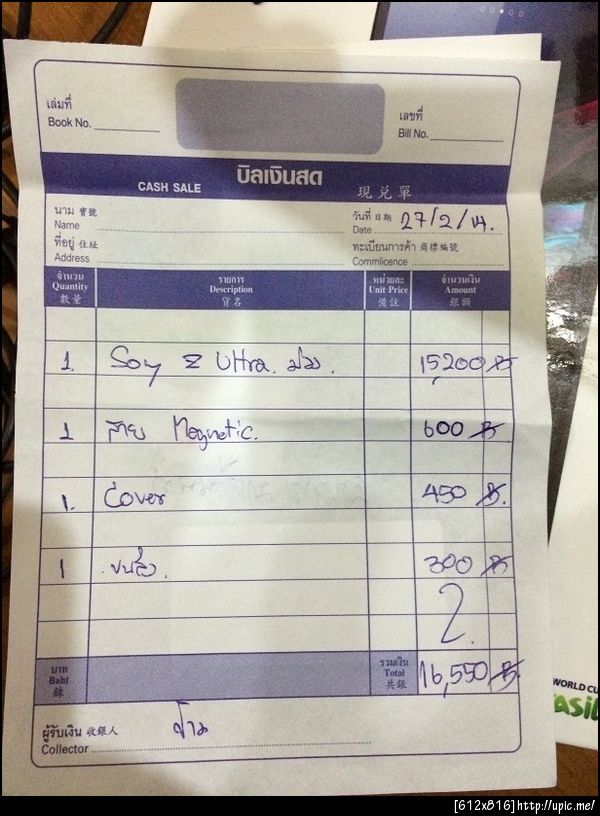 เล่มที่
Book No.
เลขที่
Bill No.
บิลเงินสด
CASH SALE 現兌單
นาม 寶號
Name
วันที่ 日期
Date 27/2/14.
ที่อยู่ 住址
Address
ทะเบียนการค้า 商標編號
Commlicence.
จำนวน รายการ หน่วยละ จำนวนเงิน
Quantity Description Unit Price Amount
數量 貨名 備註 銀額
1. Sony Z Ultra. ม่วง. 15,200 ฿
1 สาย Magnetic. 600 ฿
1. Cover 450 ฿.
1 ขนส่ง. 300 ฿
บาท รวมเงิน
Baht Total 16,550 ฿
銖 共銀
ผู้รับเงิน 收銀人
Collector
WORLD CU
asil
[612x816]http://upic.me/